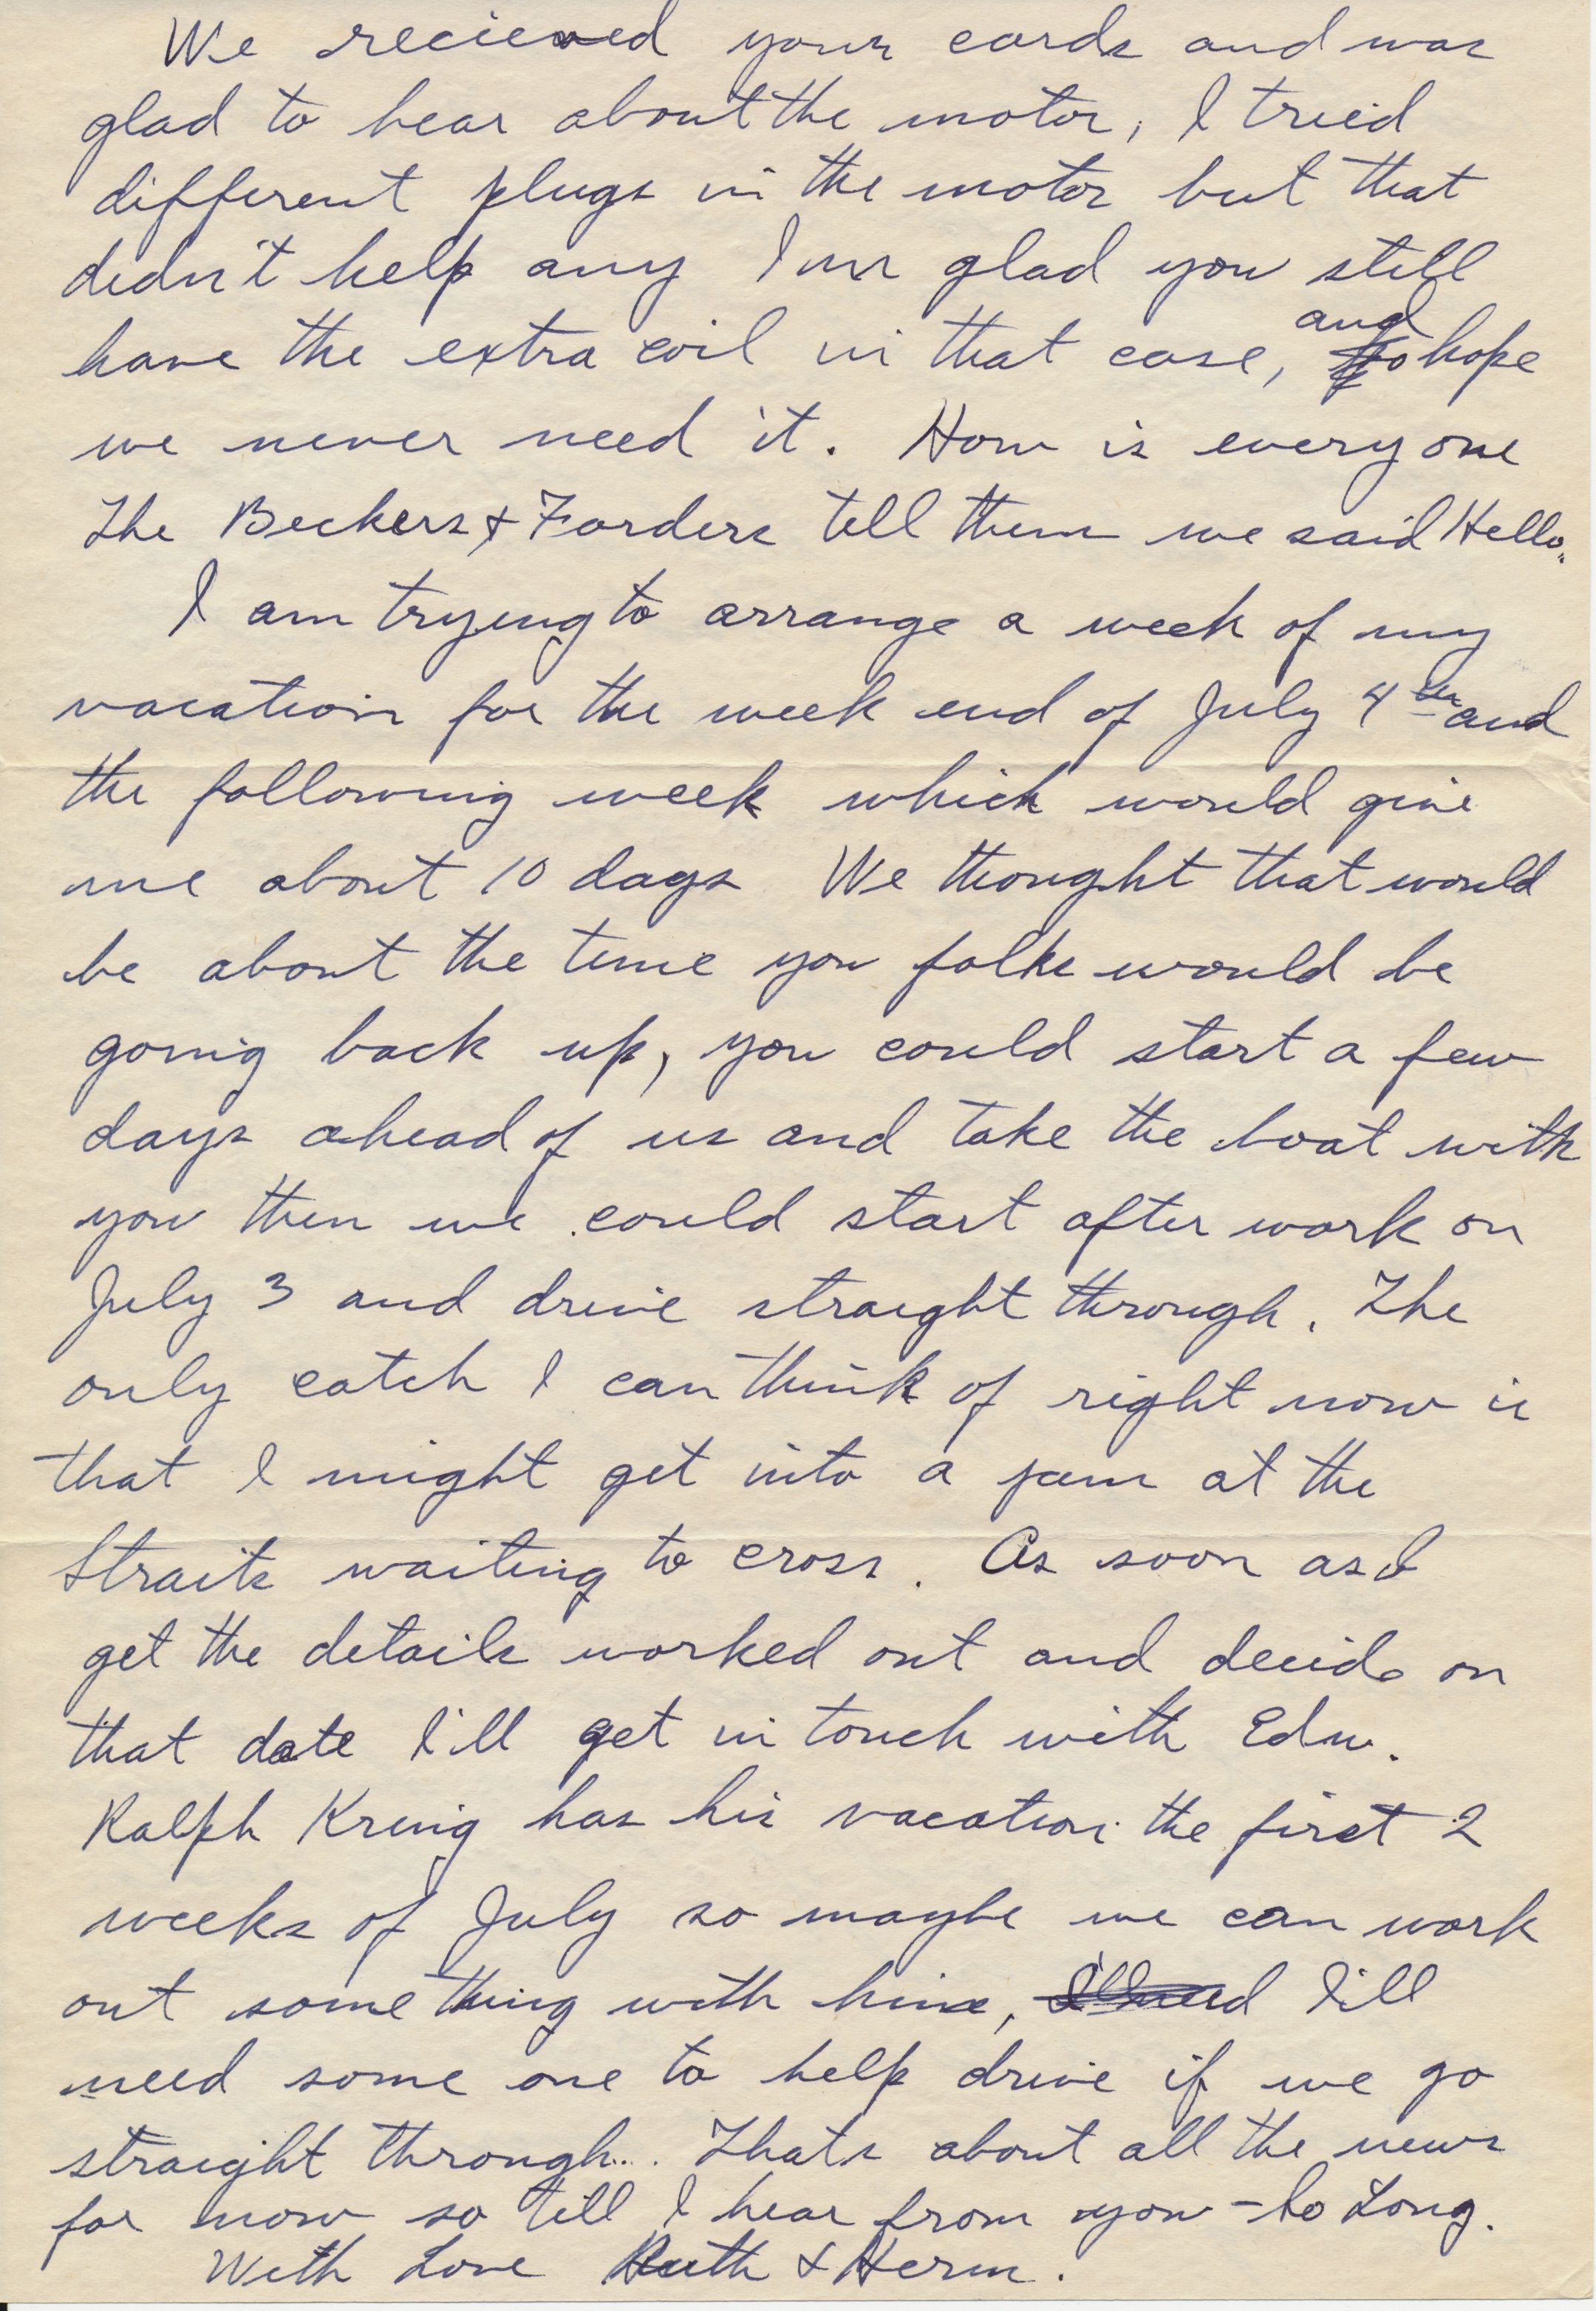 We recieved your cards and was
glad to hear about the motor, I tried
different plugs in the motor but that
didn't help any I'm glad you still
have the extra coil in that case, and hope
we never need it. How is everyone
The Beckers & Forders tell them we said Hello.
I am trying to arrange a week of my
vacation for the week end of July 4th and
the following week which would give
me about 10 days We thought that would
be about the time you folks would be
going back up, you could start a few
days ahead of us and take the boat with
you then we could start after work on
July 3 and drive straight through. The
only catch I can think of right now is
that I might get into a jam at the
Straits waiting to cross. As soon as I
get the details worked out and decide on
that date I'll get in touch with Edw.
Ralph Kreing has his vacation the first 2
weeks of July so maybe we can work
out some thing with him, I'll need I'll
need some one to help drive if we go
straight through... Thats about all the news
for now so till I hear from you - So Long.
With Love Ruth & Herm.